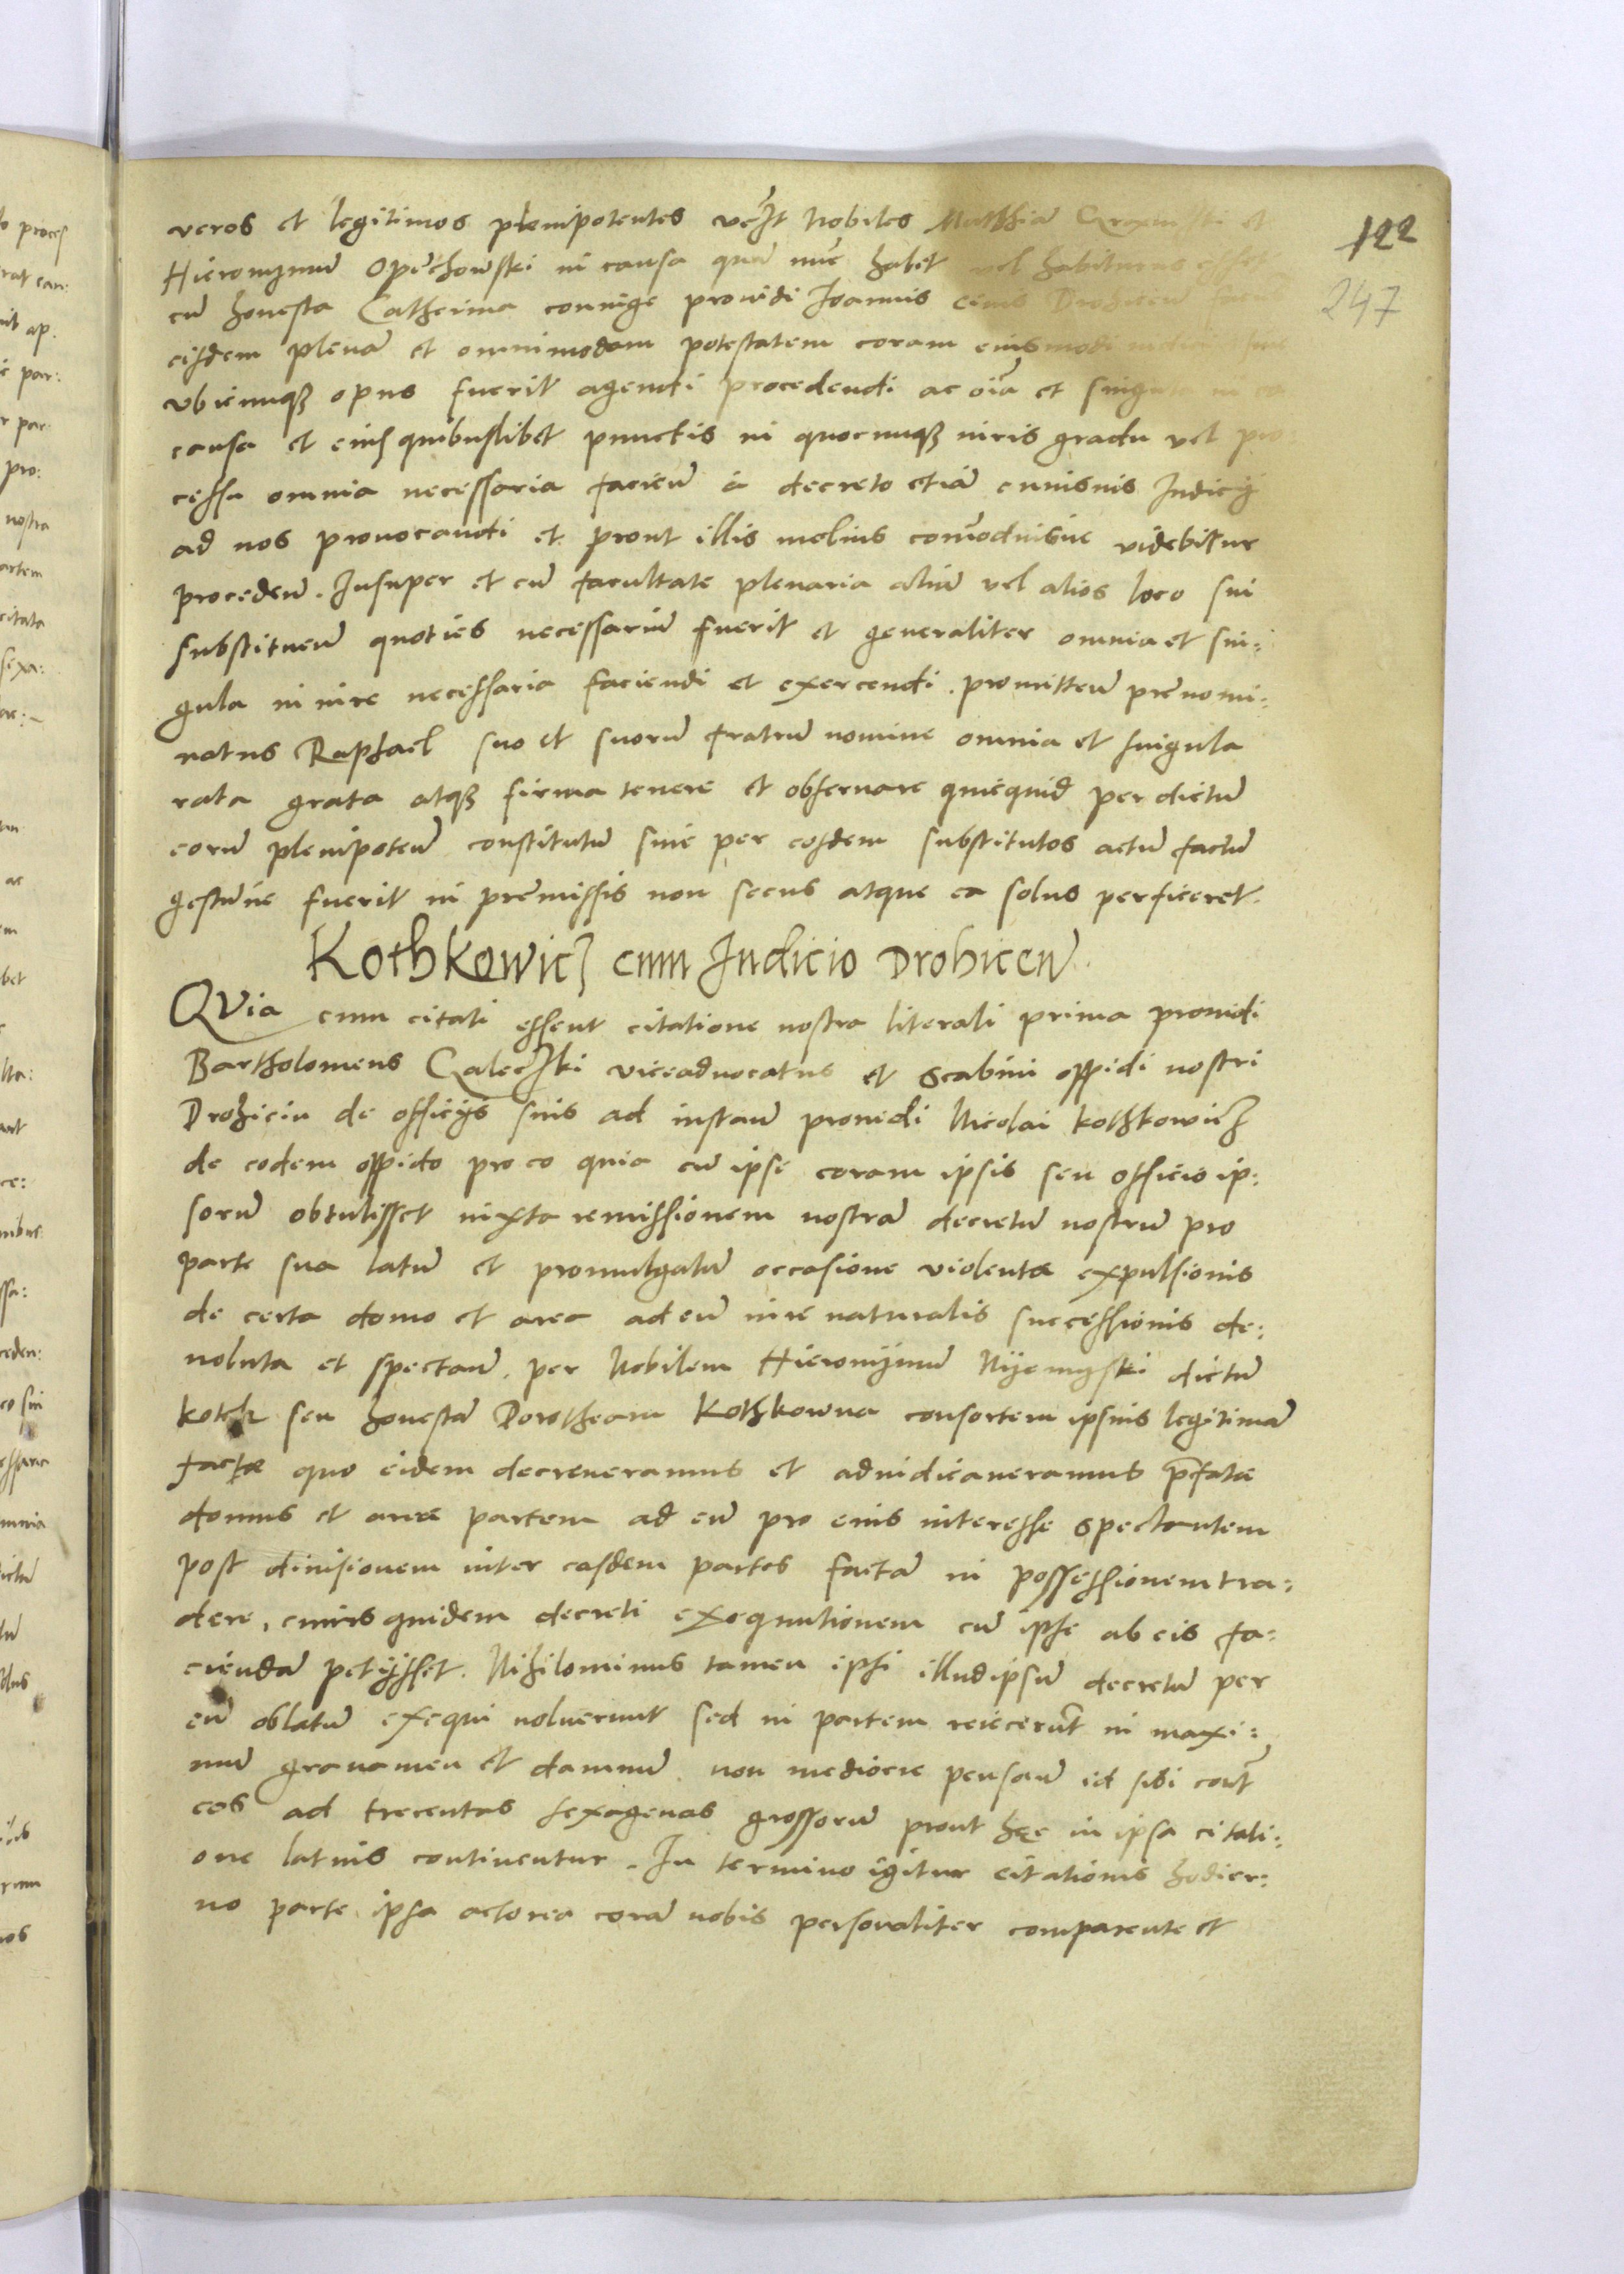 122
247
veros et legitimos plenipotentes vc̃Ʒt Nobiles Mathiã et
Hieronymum Opuchowski in causa quã nũc habet vel habiturus
cũ honesta Catherina coniuge providi Ioannis civis Drohicien̄
eisdem plenã et omnimodam potestatem coram eiusmodi
vbicunqꝫ opus fuerit agendi procedendi ac oĩa et singula in ea
causa et eius quibuslibet punctis in quocunqꝫ iuris gradu vel pro
cessu omnia necessaria facien̄ à decreto etiã cuiusuis Iudicij
ad nos provocandi et prout illis melius com̃odiusue videbitur
proceden̄. Insuper et cũ facultate plenaria aliũ vel alios loco sui
substituen̄ quoties necessariũ fuerit et generaliter omnia et sin:
gula in iure necessaria faciendi et exercendi. promitten̄ prẽnomi:
natus Raphael suo et suorũ fratrũ nomine omnia et singula
rata grata atqꝫ firma tenere et obseruare quicquid per dictũ
eorũ plenipoten̄ constitutũ siue per eosdem substitutos actũ factũ
gestũue fuerit in prẽmissis non secus atque ea solus perficeret.
Kothkowicz cum Iudicio Drohicen̄.
QVia cum citati essent citatione nostra literali prima prouidi
Bartholomeus Galeczki viceaduocatus et scabini oppidi nostri
Drohicin de officijs suis ad instan̄ prouidi Nicolai Kothkowicz
de eodem oppido pro eo quia cũ ipse coram ipsis seu officio ip:
sorũ obtulisset iuxta remissionem nostrã decretũ nostrũ pro
parte sua latũ et promulgatũ occasione violentæ expulsionis
de certa domo et area ad eũ iure naturalis successionis de:
uoluta et spectan̄. per Nobilem Hieronymum Nyemyski dictũ
Koth seu honestã Dorotheam Kothkowna consortem ipsius legitimã
factæ quo eidem decreueramus et adiudicaueramus p̄fatæ
domus et areæ partem ad eũ pro eius interesse spectantem
post diuisionem inter easdem partes factã in possessionem tra:
dere, cuius quidem decreti exequutionem cũ ipse ab eis fa:
ciendã petijsset. Nihilominus tamen ipsi illud ipsum decretũ per
eũ oblatũ exequi noluerunt sed in partem reiecerũt in maxi:
mũ grauamen et damnũ non mediocre pensan̄ id sibi cont̃
eos ad trecentas sexagenas grossorũ prout hęc in ipsa citati:
one latius continentur. In termino igitur citationis hodier:
no parte ipsa actorea corã nobis personaliter comparente et